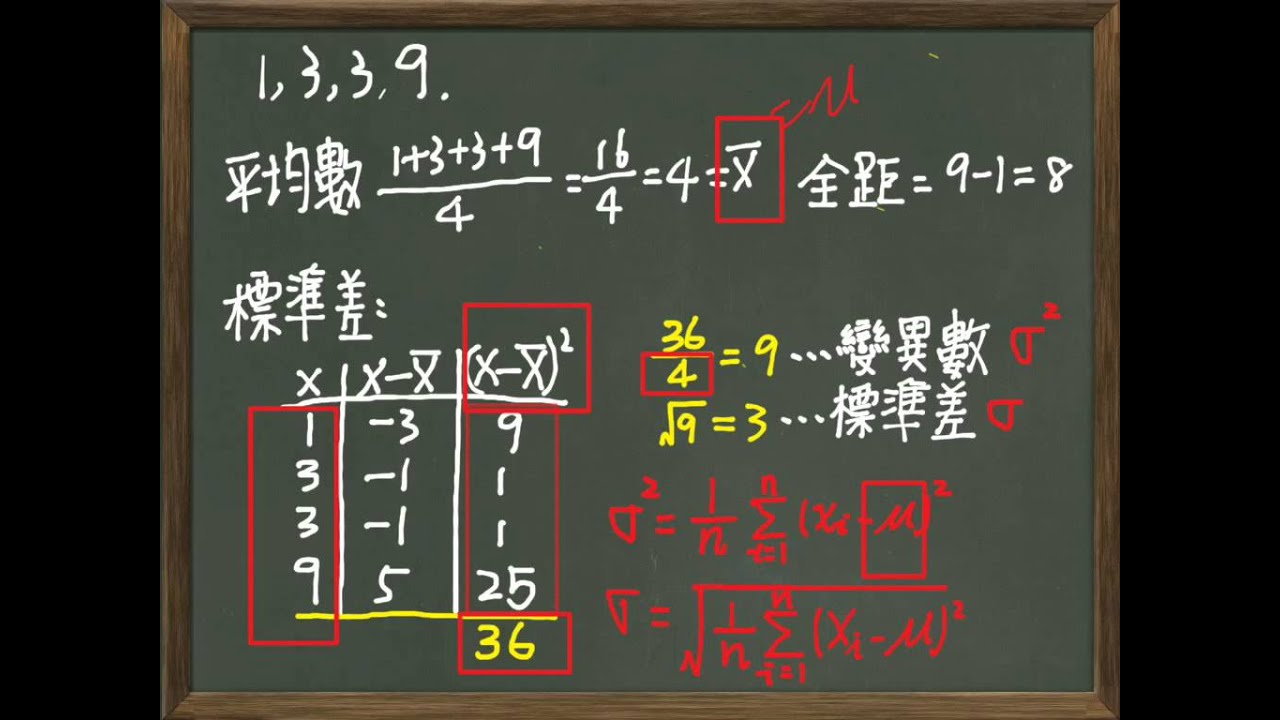 1, 3, 3, 9.
μ
平均數 (1+3+3+9)/4 = 16/4 = 4 = X̅ 全距 = 9-1 = 8
標準差:
x | X-X̅ | (X-X̅)²
1 | -3 | 9
3 | -1 | 1
3 | -1 | 1
9 | 5 | 25
36
36/4 = 9 …變異數 σ²
√9 = 3 …標準差 σ
σ² = 1/n ∑ⁿᵢ₌₁ (xᵢ-μ)²
σ = √(1/n ∑ⁿᵢ₌₁ (Xᵢ-μ)²)